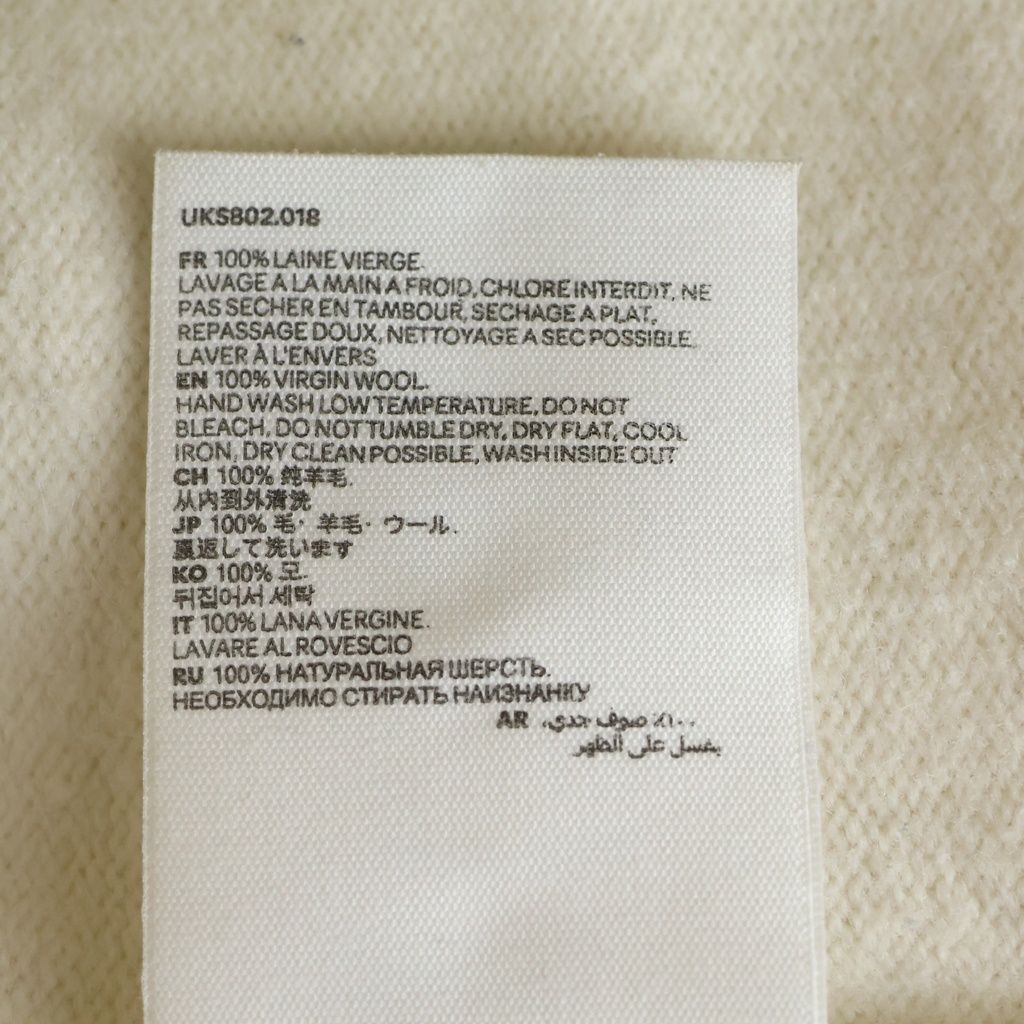 UKS802.018
FR 100% LAINE VIERGE.
LAVAGE A LA MAIN A FROID, CHLORE INTERDIT, NE
PAS SECHER EN TAMBOUR, SECHAGE A PLAT,
REPASSAGE DOUX, NETTOYAGE A SEC POSSIBLE.
LAVER À L'ENVERS
EN 100% VIRGIN WOOL.
HAND WASH LOW TEMPERATURE, DO NOT
BLEACH, DO NOT TUMBLE DRY, DRY FLAT, COOL
IRON, DRY CLEAN POSSIBLE, WASH INSIDE OUT
CH 100% 纯羊毛.
从内到外清洗
JP 100% 毛・羊毛・ウール.
裏返して洗います
KO 100% 모.
뒤집어서 세탁
IT 100% LANA VERGINE.
LAVARE AL ROVESCIO
RU 100% НАТУРАЛЬНАЯ ШЕРСТЬ.
НЕОБХОДИМО СТИРАТЬ НАИЗНАНКУ
AR ١٠٠٪ صوف جدي.
يغسل على الظهر